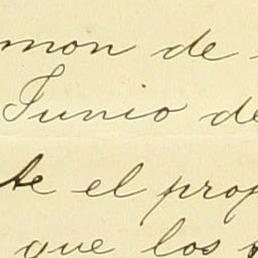 mon de
Junio de
te el prop
que los